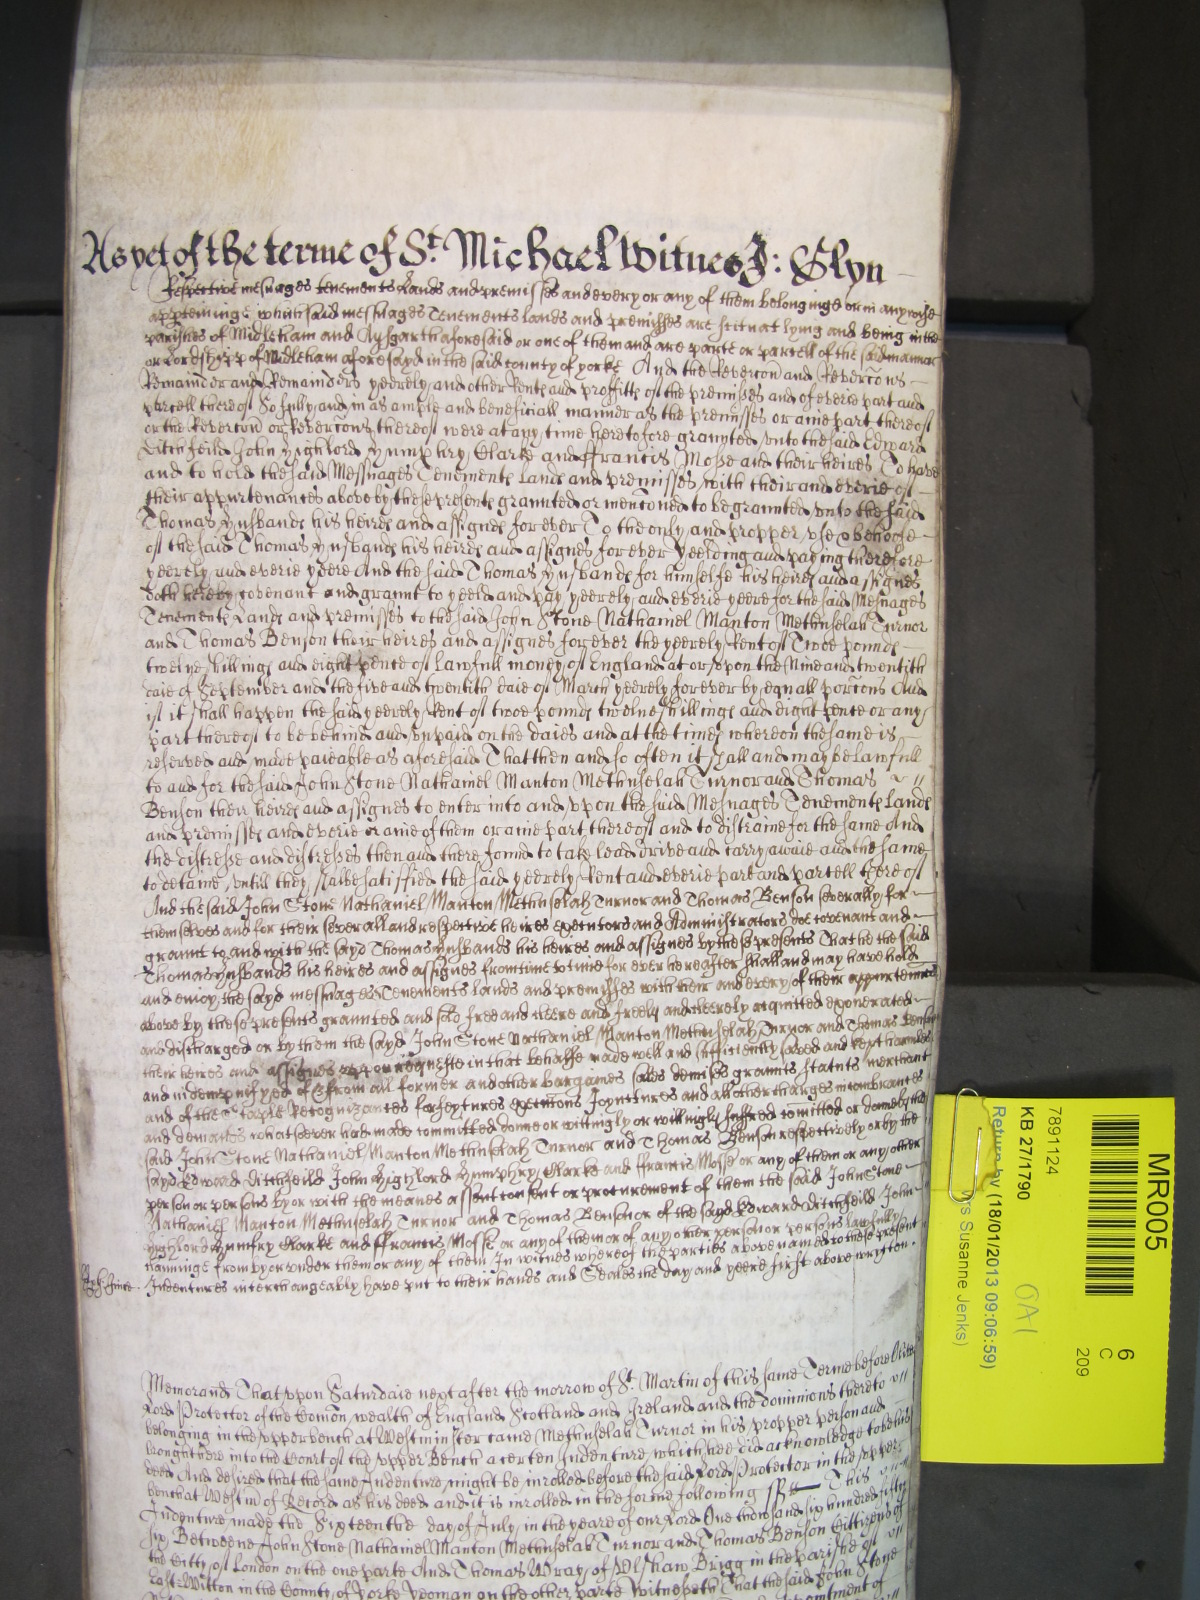 As yet of the terme of St. Michael Witnes J: Glyn
Respective messuages tenements Lands and premisses and every or any of them belonginge or in anywise
apperteininge which said messuages Tenements lands and premisses are scituat lying and being in the
parishes of Midleham and Aysgarth aforesaid or one of them and are parte or parcell of the said mannor
or Lordshipp of Midleham aforesayd in the said county of yorke And the Revercon and Revercons
Remainder and Remainders yeerely and other Rents and proffitts of the premisses and of everie part and
parcell thereof So fully and in as ample and beneficiall manner as the premisses or anie part thereof
or the Revercon or Revercons thereof were at any time heretofore graunted unto the said Edward
Ditchfeild John Highlord Humphry Clarke and ffrancis Mosse and their heires To have
and to hold the said Messuages Tenements Lands and premisses with their and everie of
their appurtenances above by these presents graunted or menconed to be graunted unto the said
Thomas Husbands his heires and assignes forever To the only and propper use & behoofe
of the said Thomas Husbands his heires and assignes forever Yeelding and paying therefore
yeerely and everie yeere And the said Thomas Husbands for himselfe his heires and assignes
doth hereby covenant and graunt to yeeld and pay yeerely and everie yeere for the said Messuages
Tenements Lands and premisses to the said John Stone Nathaniel Manton Methuselah Turnor
and Thomas Benson their heires and assignes forever the yeerely Rent of Twoe pounds
twelve shillings and eight pence of lawfull money of England at or upon the Nine and twentith
daie of September and the five and twentith daie of March yeerely forever by equall porcons And
if it shall happen the said yeerely Rent of twoe pounds twelve shillings and eight pence or any
part thereof to be behind and unpaid on the daies and at the times whereon the same is
reserved and made paieable as aforesaid That then and so often it shall and may be lawfull
to and for the said John Stone Nathaniel Manton Methuselah Turnor and Thomas
Benson their heires and assignes to enter into and upon the said Messuages Tenements Lands
and premisses and everie or anie of them or anie part thereof and to distraine for the same And
the distresse and distresses then and there found to take lead drive and carry awaie and the same
to detaine untill they shalbe satisffied the said yeerely Rent and everie part and parcell thereof
And the said John Stone Nathaniel Manton Methuselah Turnor and Thomas Benson severally for
themselves and for their severall and respective heires executors and Administrators doe covenant and
graunt to and with the sayd Thomas Husbands his heires and assignes by these presents That he the said
Thomas Husbands his heires and assignes from time to time for ever hereafter shall and may have hold
and enioy the sayd messuages Tenements lands and premisses with their and every of their appurtennces
above by these presents graunted and sold free and cleere and freely and cleerely acquitted exonerated
and discharged or by them the sayd John Stone Nathaniel Manton Methuselah Turnor and Thomas Benson
their heires and assignes upon request in that behalfe made well and sufficiently saved and kept harmeles
and indempnifyed of & from all former and other bargaines sales demises graunts statuts merchant
and of the Staple Recognizances forfeytures execucons Joyntures and all other charges incumbrances
and demands whatsoever had made committed done or wittingly or willingly suffred comitted or done by the
said John Stone Nathaniel Manton Methuselah Turnor and Thomas Benson respectively or by the
sayd Edward Ditchfeild John Highlord Humphry Clarke and ffrancis Mosse or any of them or any other
person or persons by or with the meanes assent consent or procurement of them the said John Stone
Nathaniel Manton Methuselah Turnor and Thomas Benson or of the sayd Edward Ditchfeild John
Highlord Humfry Clarke and ffrancis Mosse or any of them or of any other person or persons lawfully
clayminge from by or under them or any of them In witnes whereof the parties above named to these present
Indentures interchangeably have put to their hands and Seales the day and yeere first above wrytten.
Memorand That upon Saturdaie next after the morrow of St. Martin of this same Terme before Oliver
Lord Protector of the Comon wealth of England Scotland and Ireland and the dominions thereto
belonging in the upper bench at Westminster came Methuselah Turnor in his propper person and
brought here into the Court of the upper Bench a certen Indenture which hee did acknowledge to be his
deed And desired that the same Indenture might be inrolled before the said Lord Protector in the upper
bench at Westm of Record as his deed and it is inrolled in the forme following ss This
Indenture made the Sixteenthe day of July in the yeare of our Lord One thousand six hundred fiftie
six Betweene John Stone Nathaniel Manton Methuselah Turnor and Thomas Benson Cittizens of
the Citty of London on the one parte And Thomas Wray of Ulshaw Brigg in the parishe of
East-Witton in the County of Yorke Yeoman on the other parte Witnesseth That the said John Stone
MR005
6
C
209
7891124
KB 27/1790
Return by (18/01/2013 09:06:59)
rs Susanne Jenks)
OA1